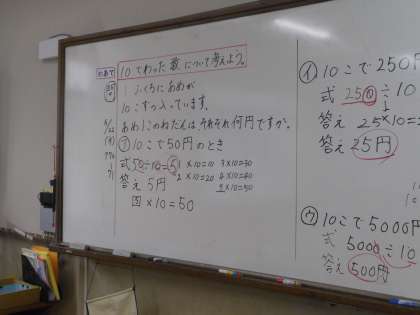 めあて
10でわった数について考えよう。
1ふくろにあめが
10こずつ入っています。
あめ1このねだんは、それぞれ何円ですか。
㋐10こで50円のとき
式 50÷10=5
1×10=10 3×10=30
2×10=20 4×10=40
5×10=50
答え 5円
×10=50
㋑10こで250円
式 250÷10
25×10=
答え 25円
㋒10こで5000円
式 5000÷10
答え 500円